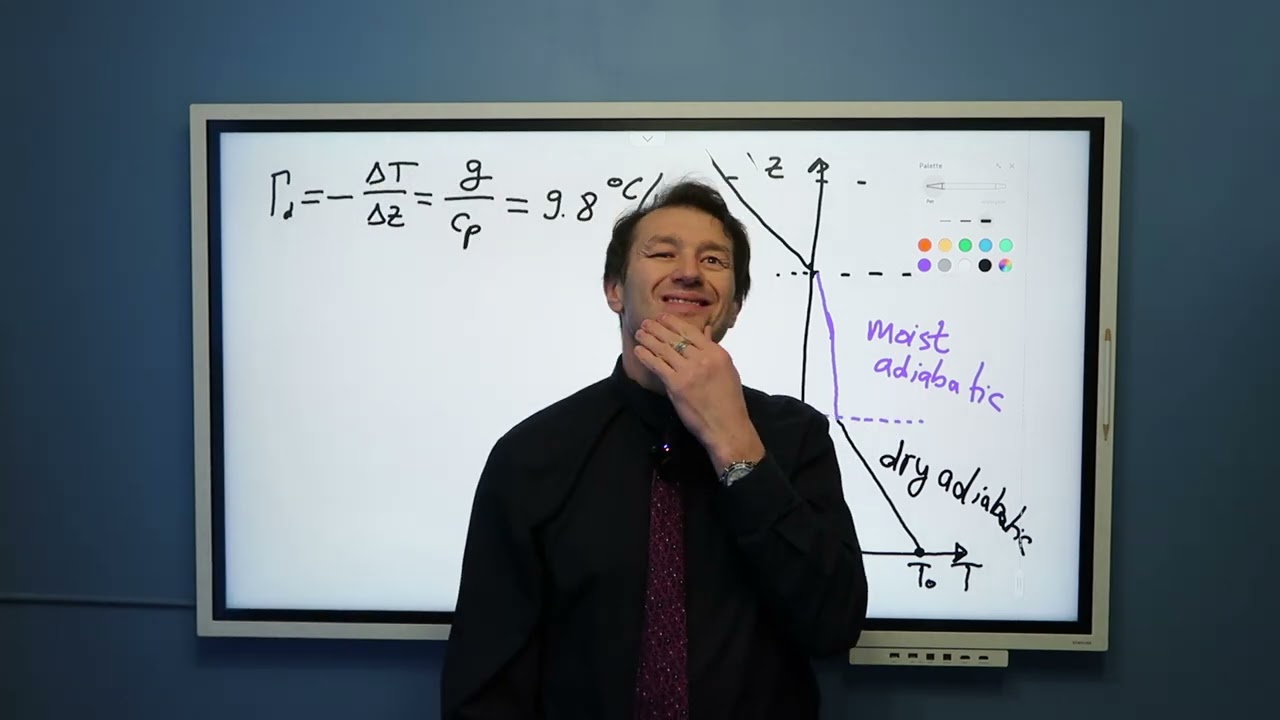 Γd = - ΔT/Δz = g/cp = 9.8 °C/
z
Palette
Pen
moist
adiabatic
dry adiabatic
T₀ T
SAMSUNG